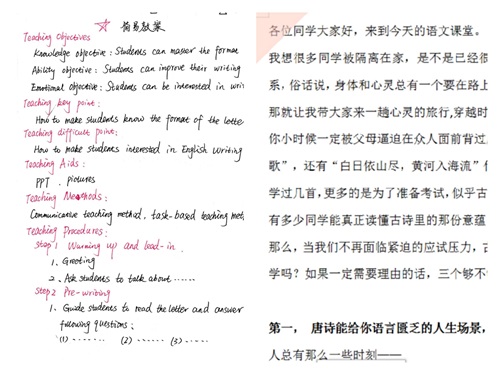 ☆ 简易教案
Teaching Objectives
Knowledge objective: Students can master the format
Ability objective: Students can improve their writing
Emotional objective: Students can be interested in writ
Teaching key point:
How to make students know the format of the lette
Teaching difficult point:
How to make students interested in English Writing
Teaching Aids:
PPT. pictures
Teaching Methods:
Communicative teaching method, task-based teaching met
Teaching Procedures:
Step 1 Warming up and lead-in.
1. Greeting
2. Ask students to talk about ......
Step 2 Pre-writing
1. Guide students to read the letter and answer
following questions:
(1) ...... (2) ...... (3) ......
各位同学大家好,来到今天的语文课堂。
我想很多同学被隔离在家,是不是已经很
系,俗话说,身体和心灵总有一个要在路上
那就让我带大家来一趟心灵的旅行,穿越时
你小时候一定被父母逼迫在众人面前背过
歌”,还有“白日依山尽,黄河入海流”
学过几首,更多的是为了准备考试,似乎古
有多少同学能真正读懂古诗里的那份意蕴
那么,当我们不再面临紧迫的应试压力,古
学吗?如果一定需要理由的话,三个够不
第一, 唐诗能给你语言匮乏的人生场景,
人总有那么一些时刻——